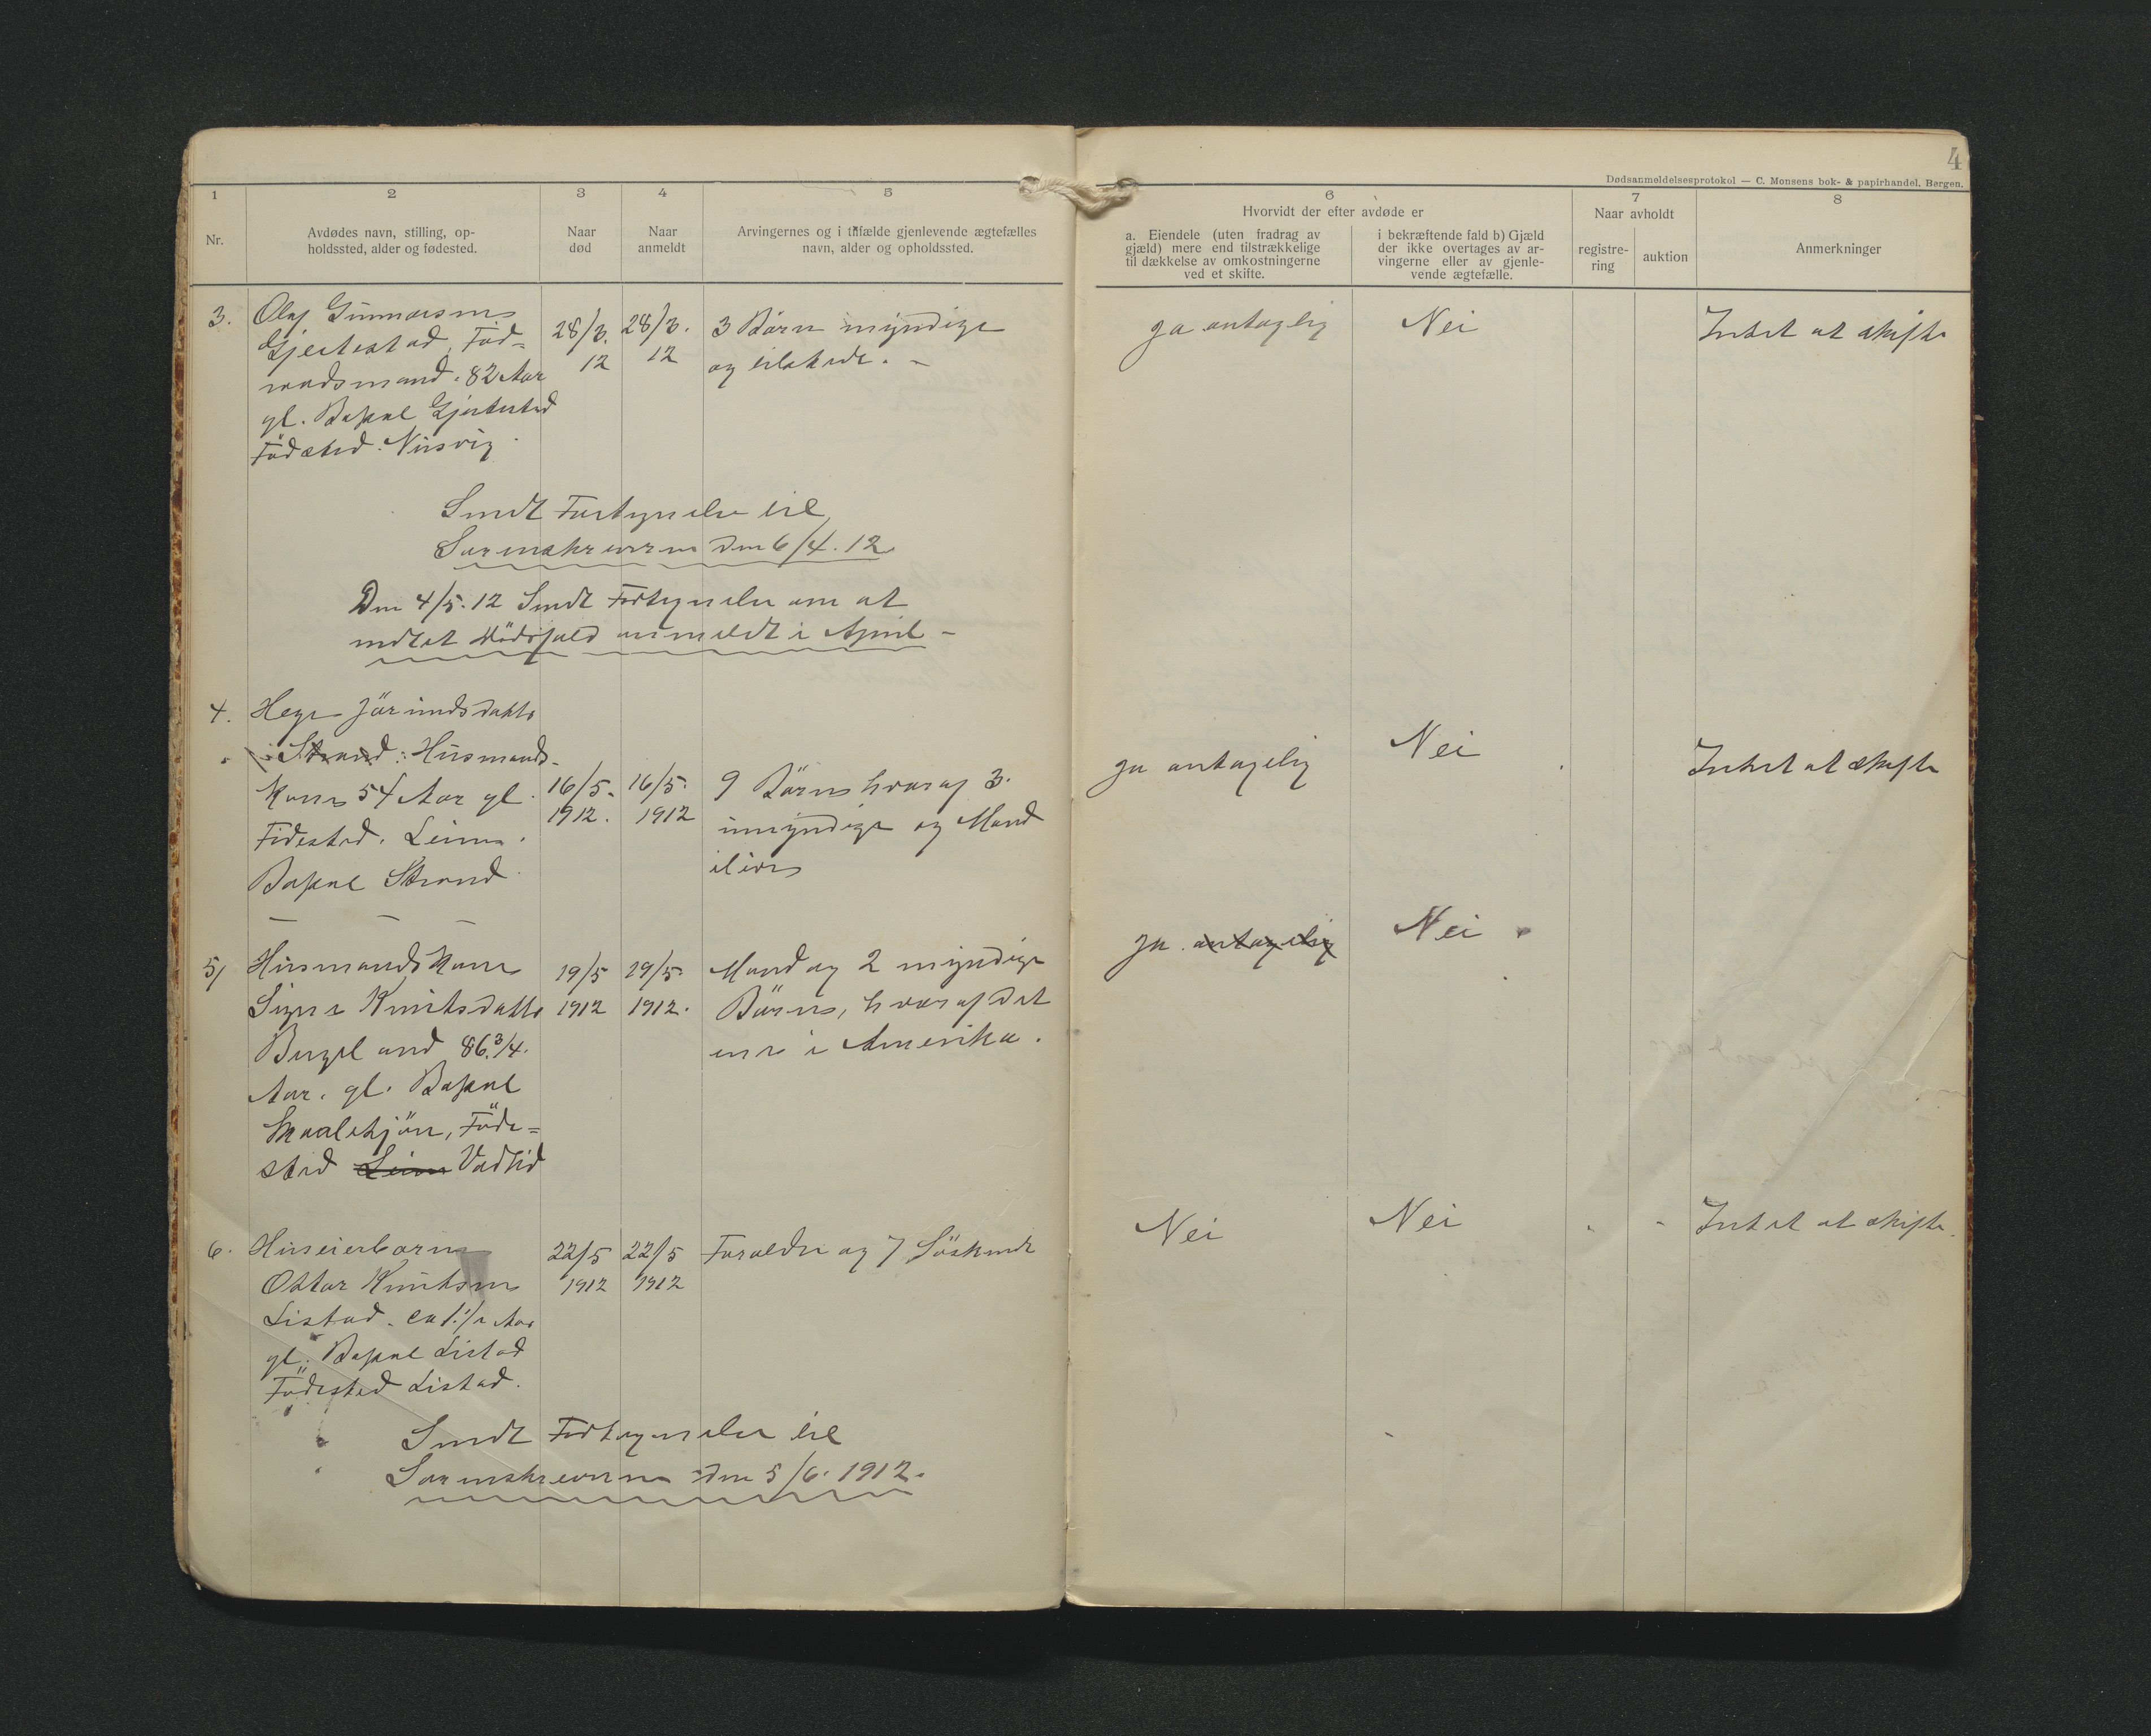 4
Dødsanmeldelsesprotokol — C. Monsens bok- & papirhandel, Bergen.
1
2
3
4
5
6
7
8
Nr.
Avdødes navn, stilling, op-
holdssted, alder og fødested.
Naar
død
Naar
anmeldt
Arvingernes og i tilfælde gjenlevende ægtefælles
navn, alder og opholdssted.
Hvorvidt der efter avdøde er
a. Eiendele (uten fradrag av
gjæld) mere end tilstrækkelige
til dækkelse av omkostningerne
ved et skifte.
i bekræftende fald b) Gjæld
der ikke overtages av ar-
vingerne eller av gjenle-
vende ægtefælle.
Naar avholdt
registre-
ring
auktion
Anmerkninger
3.
Olaf Gunnarsen
Gjertestad, Föd=
raadsmand. 82 Aar
gl. Bopæl Gjertestad
Födested:
28/3.
12
28/3.
12
3 Börn myndige
og tilstede. –
Ja antaglig
Nei
Intet at skifte
Sendt Fortegnelse til
Sorenskriveren den 6/4. 12
Den 4/5. 12 Sendt Fortegnelse om at
intet Dödsfald anmeldt i April –
4.
Hege Jörundsdatter
i Strand: Husmands-
Kone 54 Aar gl.
Födested. Leim.
Bopæl Strand
16/5.
1912.
16/5.
1912
9 Börn hvoraf 3.
umyndige og Mand
ilive
Ja antagelig
Nei
Intet at skifte
5/
Husmandskone
Signe Knutsdatter
Bergeland 86.3/4.
Aar. gl. Bopæl
Födе=
sted Leim
19/5
1912
19/5.
1912.
Mand og 2 myndige
Börn, hvoraf det
ene i Amerika.
Ja antagelig
Nei
6.
Huseierbarn
Ottar Knutsen
Listad. ca 1.1/2 Aar
gl. Bopæl Listad
Födested Listad.
22/5
1912
22/5
1912
Forældre og 7 Söskende
Nei
Nei
Intet at skifte.
Sendt Fortegnelse til
Sorenskriveren den 5/6. 1912.